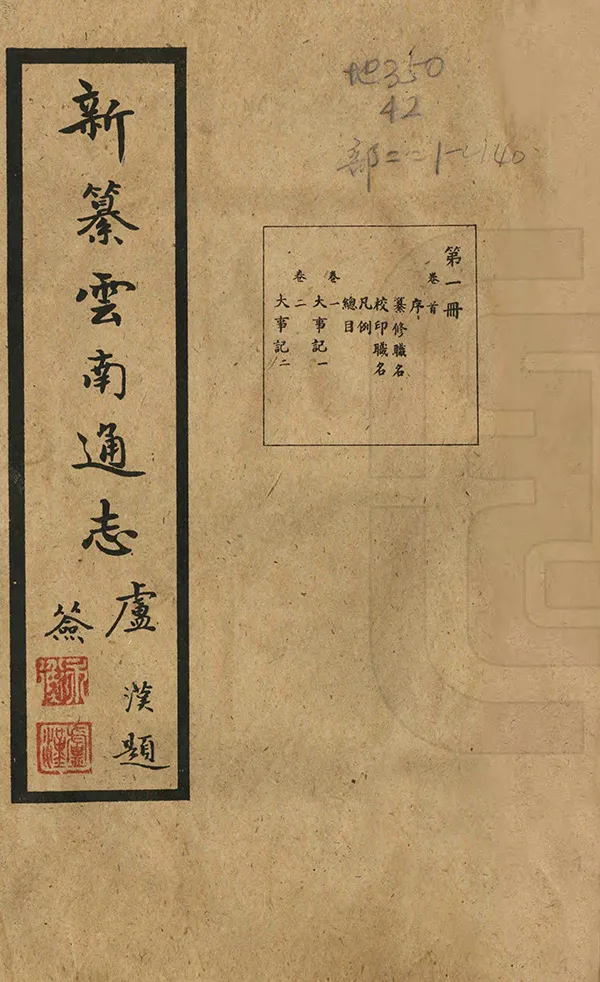 地350
42
第一冊
卷首
序
纂修職名
校印職名
凡例
總目
卷一
大事記一
卷二
大事記二
新纂雲南通志
盧漢題
簽
永衡
盧漢